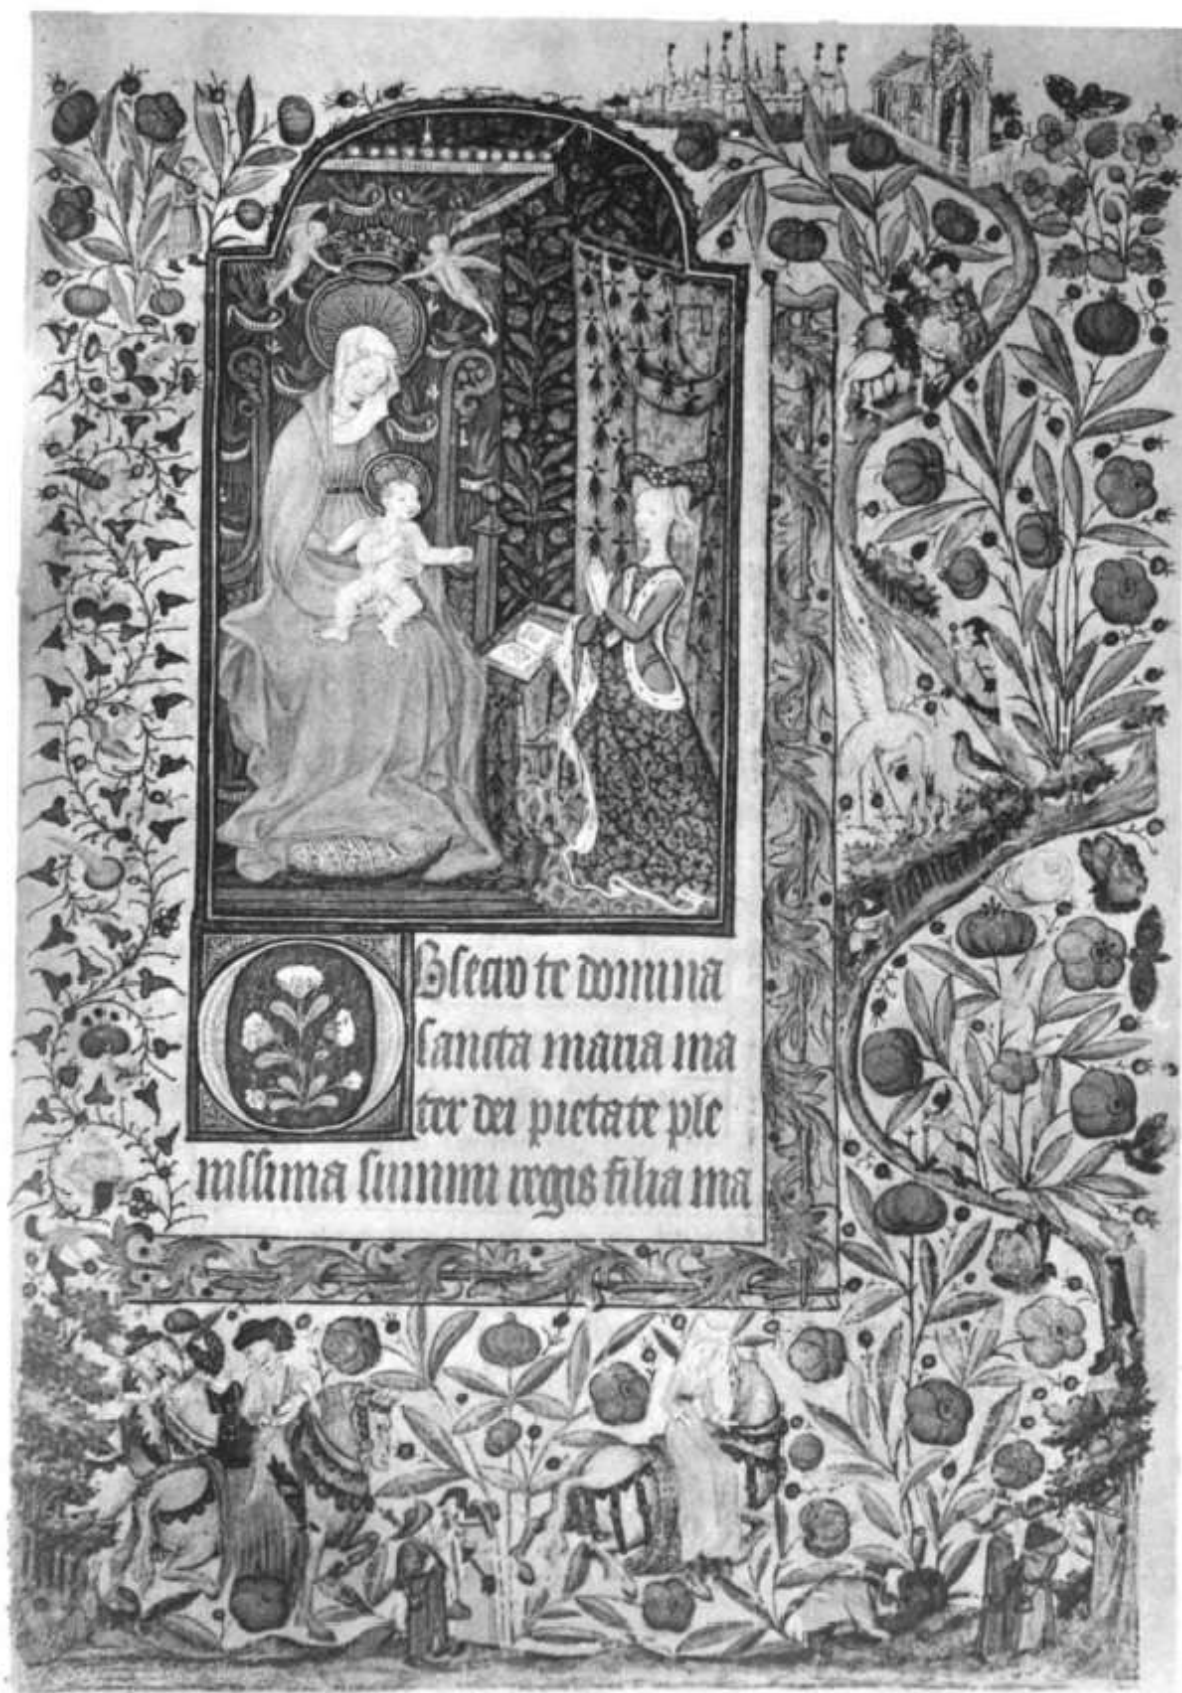 Obsecro te domina
sancta maria ma
ter dei pietate ple
nissima summi regis filia ma